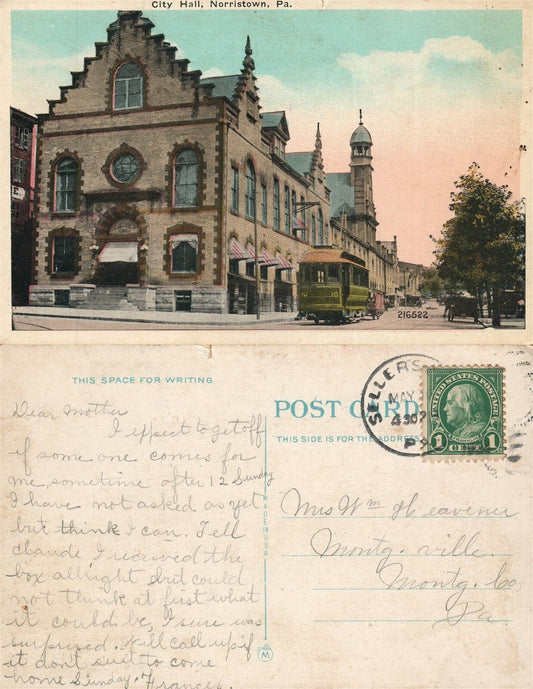 City Hall, Norristown, Pa.
216522
THIS SPACE FOR WRITING
Dear Mother
I expect to get off
if some one comes for
me sometime after 12 Sunday
I have not asked as yet
but think I can. Tell
Claude I received the
box allright but could
not think at first what
it could be, I sure was
surprised. Will call up if
it dont suit to come
home Sunday. Frances.
MADE IN USA
M
POST CARD
THIS SIDE IS FOR THE ADDRESS
SELLERS
MAY
430P
PA
UNITED STATES POSTAGE
1 CENT 1
Mrs Wm Heavener
Montg. ville.
Montg. Co.
Pa.